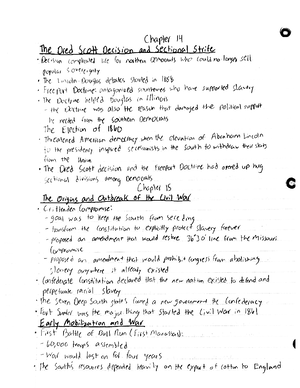 Chapter 14
The Dred Scott Decision and Sectional Strife
• Decision complicated life for northern democrats who could no longer sell
popular sovereignty
• The Lincoln Douglas debates started in 1858
• Freeport Doctrine: antagonized southerners who have supported slavery
• The Doctrine helped Douglas in Illinois
- the doctrine was also the reason that damaged the political support
he needed from the southern democrats
The Election of 1860
• Threatened American democracy when the elevation of Abraham Lincoln
to the presidency inspired secessionists in the south to withdraw their states
from the Union
• The Dred Scott decision and the Freeport Doctrine had opened up huge
sectional divisions among Democrats
Chapter 15
The Origins and Outbreak of the Civil War
• Crittenden Compromise:
- goal was to keep the South from seceding
- transform the constitution to explicitly protect slavery forever
- proposed an amendment that would restore 36°30' line from the Missouri
Compromise
- proposed an amendment that would prohibit congress from abolishing
slavery anywhere it already existed
• Confederate Constitution declared that the new nation existed to defend and
perpetuate racial slavery
• The seven Deep South states formed a new government the Confederacy
• Fort Sumter was the major thing that started the Civil War in 1861
Early Mobilization and War
• First Battle of Bull Run (First Manassas):
- 60,000 troops assembled
- War would last on for four years
• The South's resources depended heavily on the export of cotton to England